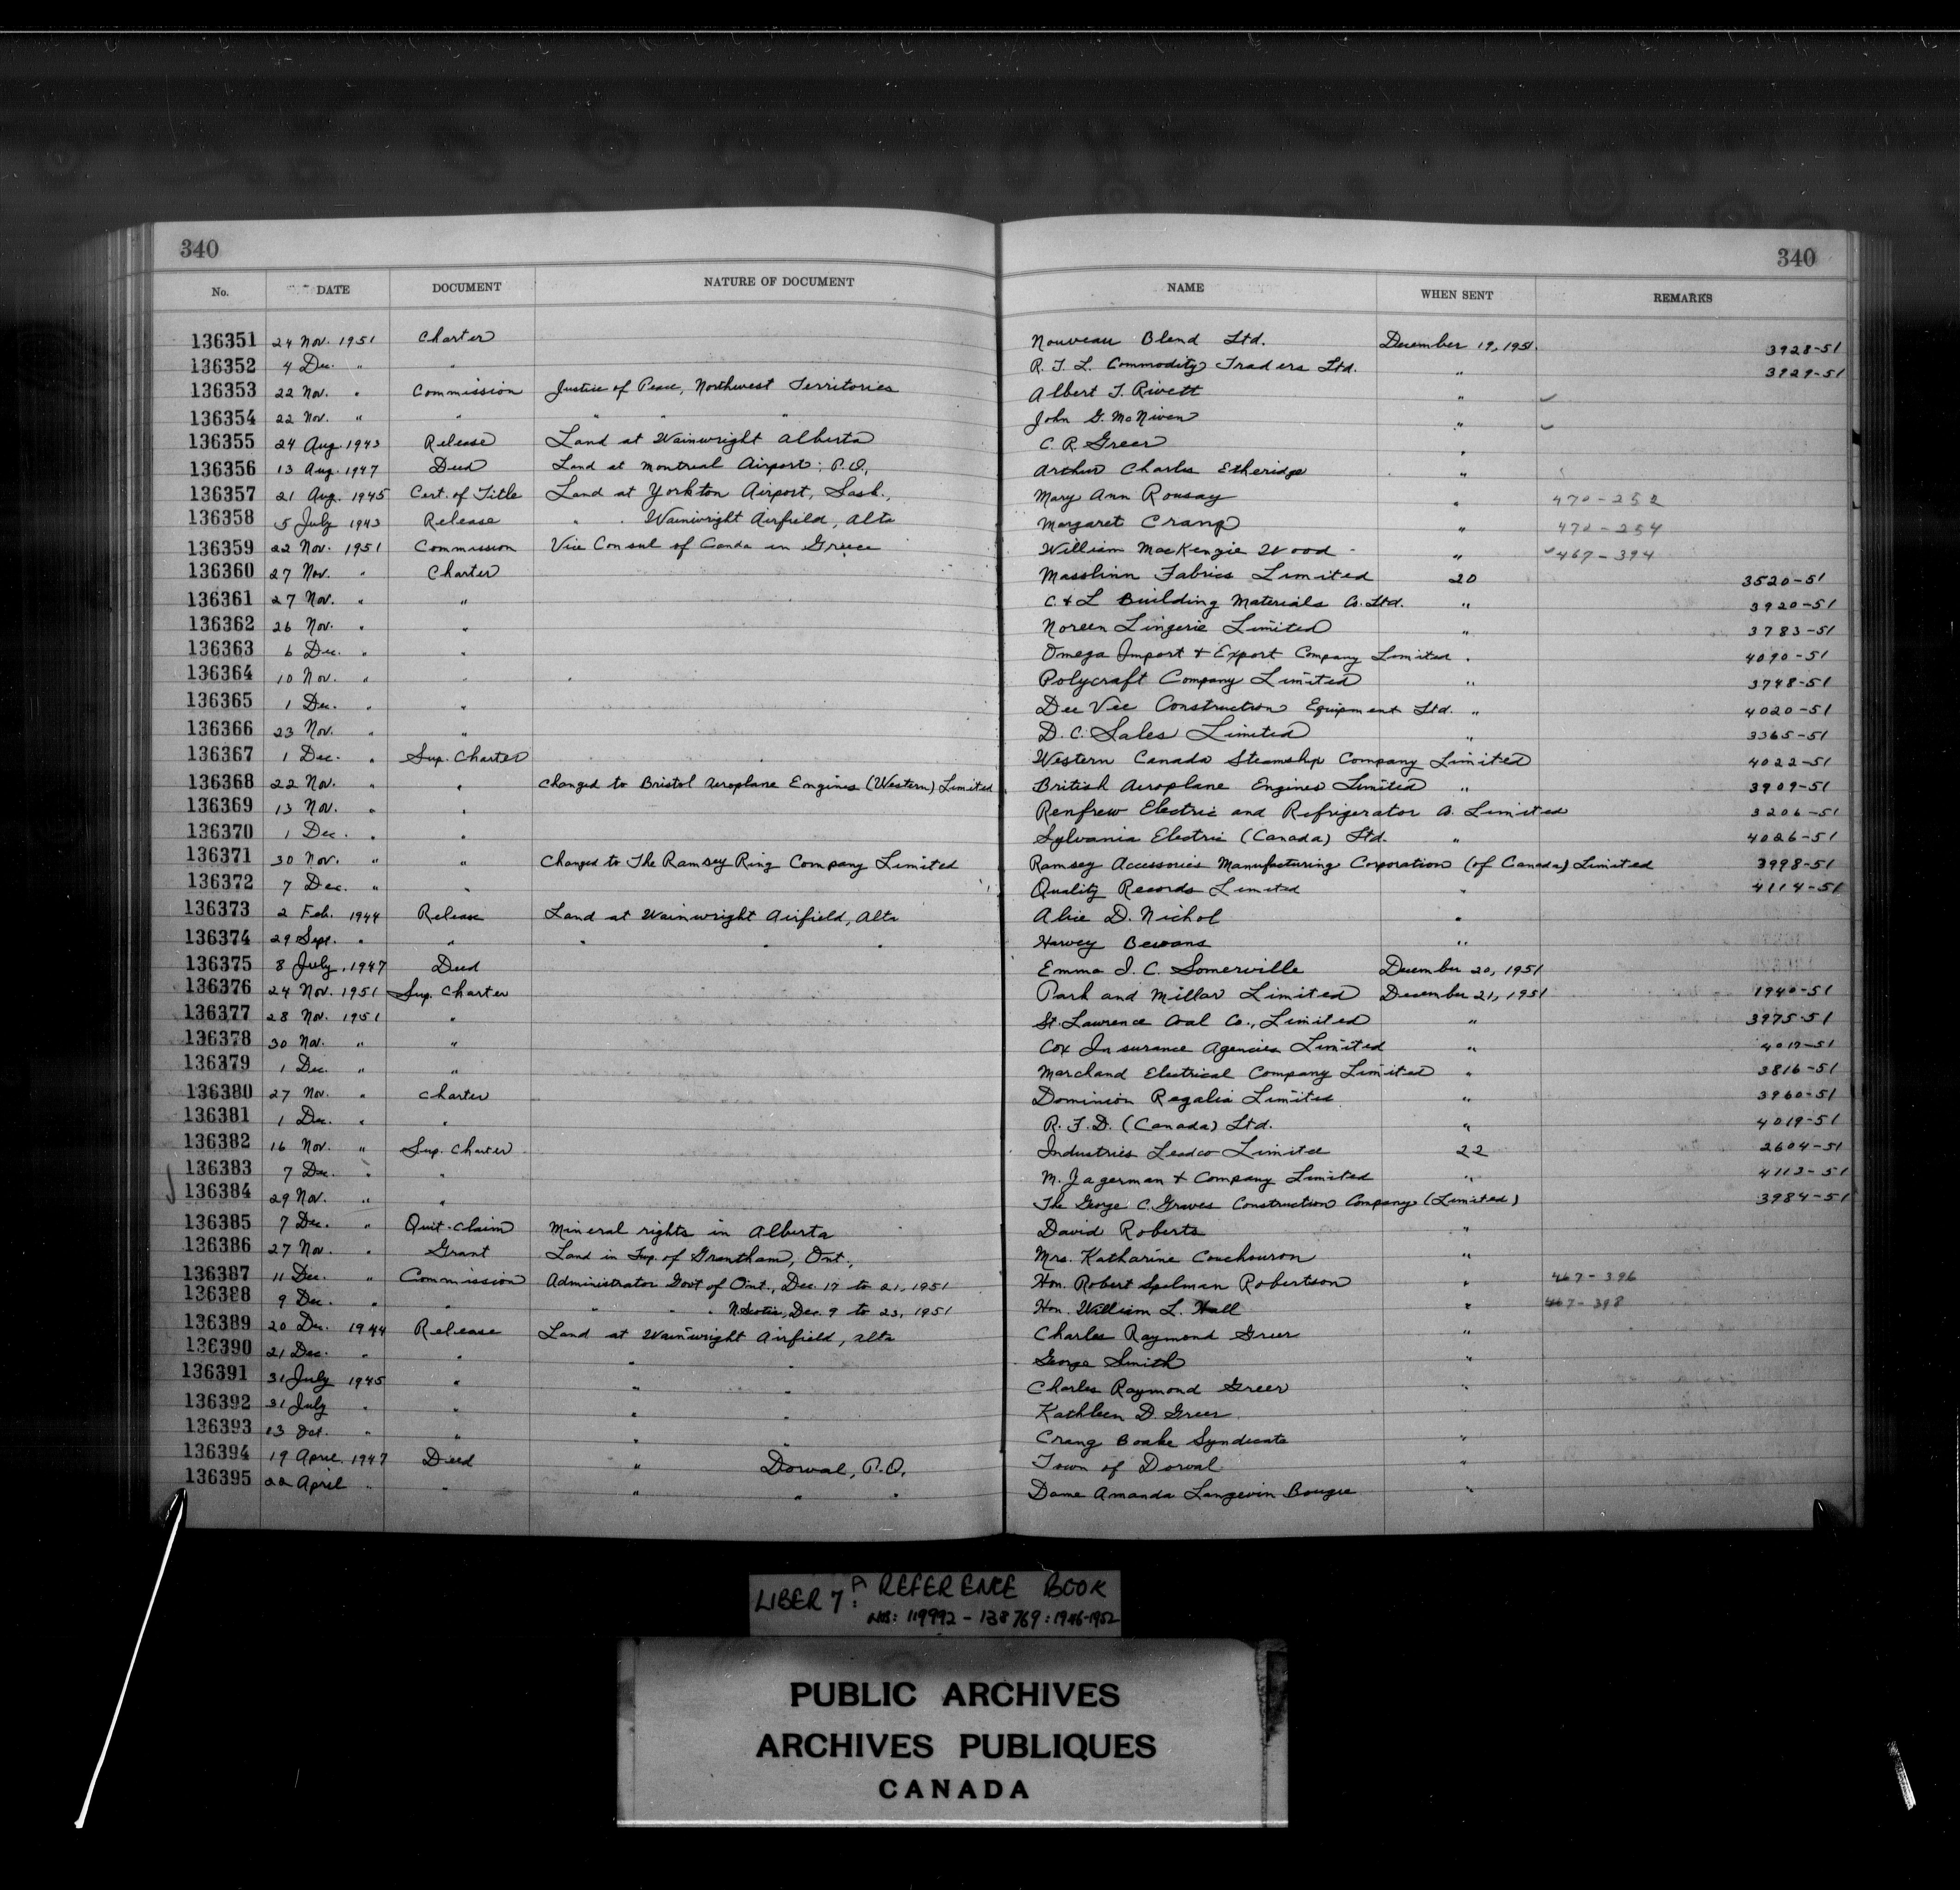 340 340
No. DATE DOCUMENT NATURE OF DOCUMENT NAME WHEN SENT REMARKS
136351 24 Nov. 1951 Charter Nouveau Blend Ltd. December 19, 1951. 3928-51
136352 4 Dec. " " R. T. L. Commodity Traders Ltd. " 3929-51
136353 22 Nov. " Commission Justice of Peace, Northwest Territories Albert T. Rivett "
136354 22 Nov. " " " " " John G. McNiven "
136355 24 Aug. 1943 Release Land at Wainwright Alberta C. R. Greer "
136356 13 Aug. 1947 Deed Land at Montreal Airport; P.Q. Arthur Charles Etheridge "
136357 21 Aug. 1945 Cert. of Title Land at Yorkton Airport, Sask., Mary Ann Rousay " 470-252
136358 5 July 1943 Release " " Wainwright Airfield, Alta Margaret Crang " 472-254
136359 22 Nov. 1951 Commission Vice Consul of Canda in Greece William MacKenzie Wood - " 467-394
136360 27 Nov. " Charter Masslinn Fabrics Limited 20 3520-51
136361 27 Nov. " " C. & L Building Materials Co. Ltd. " 3920-51
136362 26 Nov. " " Noreen Lingerie Limited " 3783-51
136363 6 Dec. " " Omega Import & Export Company Limited " 4090-51
136364 10 Nov. " " Polycraft Company Limited " 3748-51
136365 1 Dec. " " Dee Vee Construction Equipment Ltd. " 4020-51
136366 23 Nov. " " D. C. Sales Limited " 3365-51
136367 1 Dec. " Sup. Charter Western Canada Steamship Company Limited 4022-51
136368 22 Nov. " " Changed to Bristol Aeroplane Engines (Western) Limited British Aeroplane Engines Limited " 3909-51
136369 13 Nov. " " Renfrew Electric and Refrigerator Co. Limited 3206-51
136370 1 Dec. " " Sylvania Electric (Canada) Ltd. " 4026-51
136371 30 Nov. " " Changed to The Ramsey Ring Company Limited Ramsey Accessories Manufacturing Corporation (of Canada) Limited 3998-51
136372 7 Dec. " " Quality Records Limited " 4114-51
136373 2 Feb. 1944 Release Land at Wainwright Airfield, Alta Alice D. Nichol "
136374 29 Sept. " " " " " Harvey Bewans "
136375 8 July, 1947 Deed Emma I. C. Somerville December 20, 1951
136376 24 Nov. 1951 Sup. Charter Park and Millar Limited December 21, 1951 1940-51
136377 28 Nov. 1951 " St. Lawrence Coal Co., Limited " 3975-51
136378 30 Nov. " " Cox Insurance Agencies Limited " 4017-51
136379 1 Dec. " " Marchand Electrical Company Limited " 3816-51
136380 27 Nov. " Charter Dominion Regalia Limited " 3960-51
136381 1 Dec. " " R. F. D. (Canada) Ltd. " 4019-51
136382 16 Nov. " Sup. Charter Industries Leadco Limited 22 2604-51
136383 7 Dec. " " M. Jagerman & Company Limited " 4112-51
136384 29 Nov. " " The George C. Graves Construction Company (Limited) 3984-51
136385 7 Dec. " Quit-claim Mineral rights in Alberta David Roberts "
136386 27 Nov. " Grant Land in Twp. of Grantham, Ont., Mrs. Katharine Couchouron "
136387 11 Dec. " Commission Administrator Govt of Ont., Dec. 17 to 21, 1951 Hon. Robert Spelman Robertson " 467-396
136388 9 Dec. " " " " " N. Scotia, Dec. 9 to 23, 1951 Hon. William L. Hall " 467-398
136389 20 Dec. 1944 Release Land at Wainwright Airfield, Alta Charles Raymond Greer "
136390 21 Dec. " " " " George Smith "
136391 31 July 1945 " " " Charles Raymond Greer "
136392 31 July " " " " Kathleen D. Greer "
136393 13 Oct. " " " " Crang Boake Syndicate "
136394 19 April 1947 Deed " Dorval, P.Q. Town of Dorval "
136395 22 April " " " " " Dame Amanda Langevin Bougie "
LIBER 7A: REFERENCE BOOK
NOS: 119992 - 138769: 1946-1952
PUBLIC ARCHIVES
ARCHIVES PUBLIQUES
CANADA